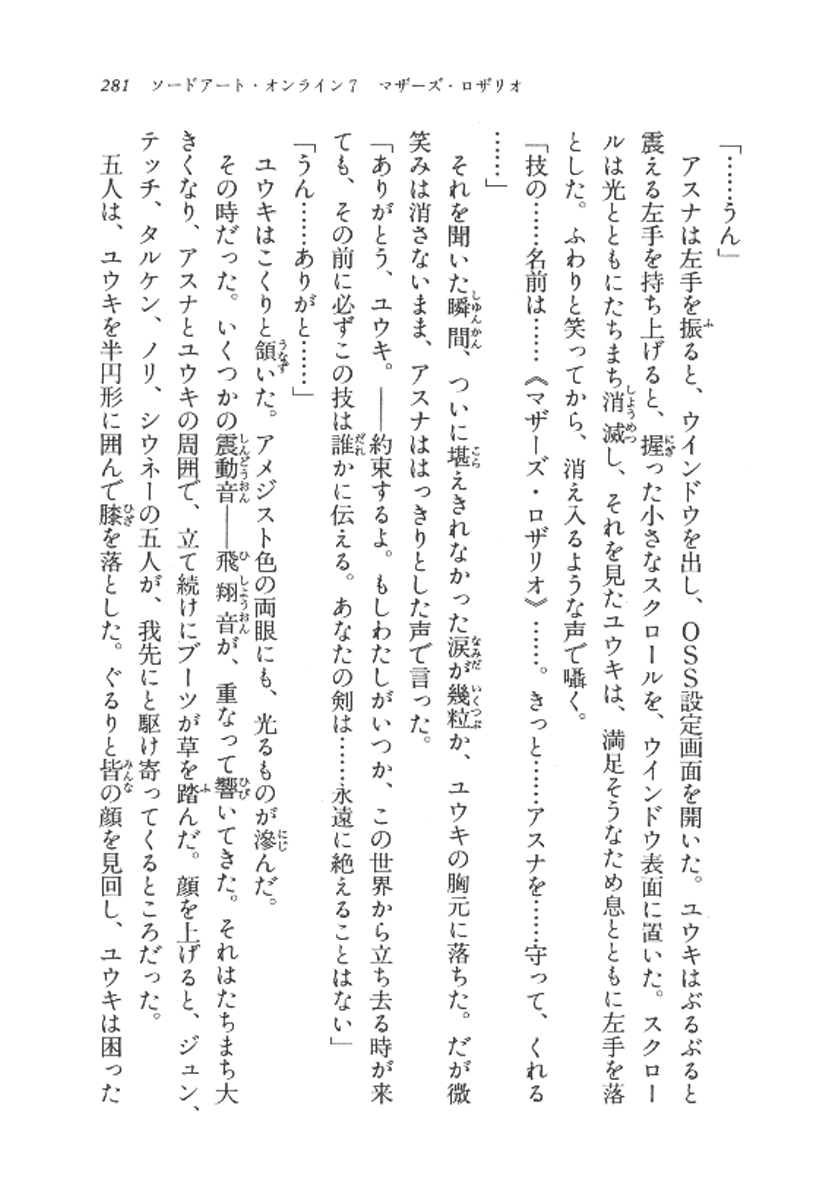 281　ソードアート・オンライン7　マザーズ・ロザリオ
「……うん」
　アスナは左手を振ると、ウインドウを出し、OSS設定画面を開いた。ユウキはぶるぶると
震える左手を持ち上げると、握った小さなスクロールを、ウインドウ表面に置いた。スクロー
ルは光とともにたちまち消滅し、それを見たユウキは、満足そうなため息とともに左手を落
とした。ふわりと笑ってから、消え入るような声で囁く。
「技の……名前は……《マザーズ・ロザリオ》……。きっと……アスナを……守って、くれる
……」
　それを聞いた瞬間、ついに堪えきれなかった涙が幾粒か、ユウキの胸元に落ちた。だが微
笑みは消さないまま、アスナははっきりとした声で言った。
「ありがとう、ユウキ。――約束するよ。もしわたしがいつか、この世界から立ち去る時が来
ても、その前に必ずこの技は誰かに伝える。あなたの剣は……永遠に絶えることはない」
「うん……ありがと……」
　ユウキはこくりと頷いた。アメジスト色の両眼にも、光るものが滲んだ。
　その時だった。いくつかの震動音――飛翔音が、重なって響いてきた。それはたちまち大
きくなり、アスナとユウキの周囲で、立て続けにブーツが草を踏んだ。顔を上げると、ジュン、
テッチ、タルケン、ノリ、シウネーの五人が、我先にと駆け寄ってくるところだった。
　五人は、ユウキを半円形に囲んで膝を落とした。ぐるりと皆の顔を見回し、ユウキは困った